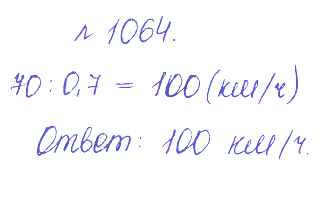 № 1064.
70 : 0,7 = 100 (км/ч)
Ответ: 100 км/ч.